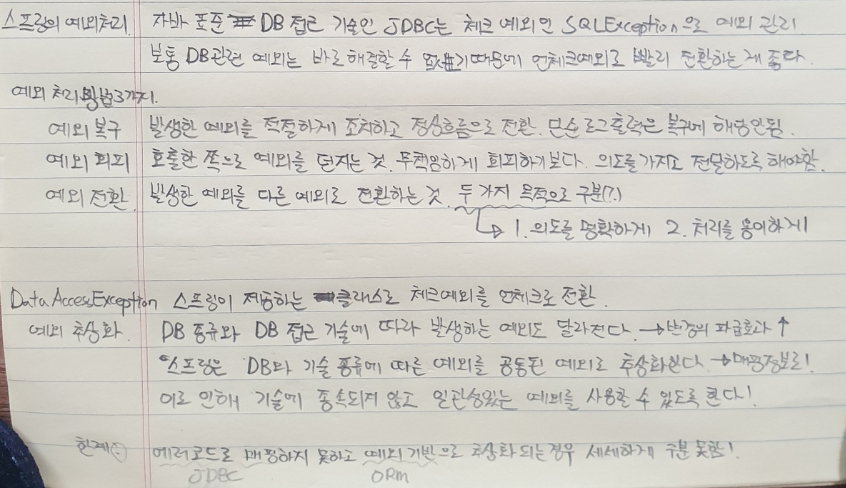 스프링의 예외처리 자바 표준 DB 접근 기술인 JDBC는 체크 예외인 SQLException으로 예외 관리
보통 DB관련 예외는 바로 해결할 수 없기 때문에 언체크예외로 빨리 전환하는 게 좋다.
예외 처리 방법 3가지.
예외 복구 발생한 예외를 적절하게 조치하고 정상흐름으로 전환. 단순 로그출력은 복구에 해당안됨.
예외 회피 호출한 쪽으로 예외를 던지는 것. 무책임하게 회피하기보다. 의도를 가지고 전달하도록 해야함.
예외 전환 발생한 예외를 다른 예외로 전환하는 것. 두 가지 목적으로 구분(?)
↳ 1. 의도를 명확하게 2. 처리를 용이하게
DataAccessException 스프링이 제공하는 클래스로 체크예외를 언체크로 전환.
예외 추상화 DB 종류와 DB 접근 기술에 따라 발생하는 예외도 달라진다. → 변경의 파급효과 ↑
스프링은 DB와 기술 종류에 따른 예외를 공통된 예외로 추상화한다. → 매핑정보로!
이로 인해 기술에 종속되지 않고 일관성있는 예외를 사용할 수 있도록 한다!
한계 에러코드로 매핑하지 못하고 예외 기반으로 추상화 되는경우 세세하게 구분 못함!
JDBC ORM